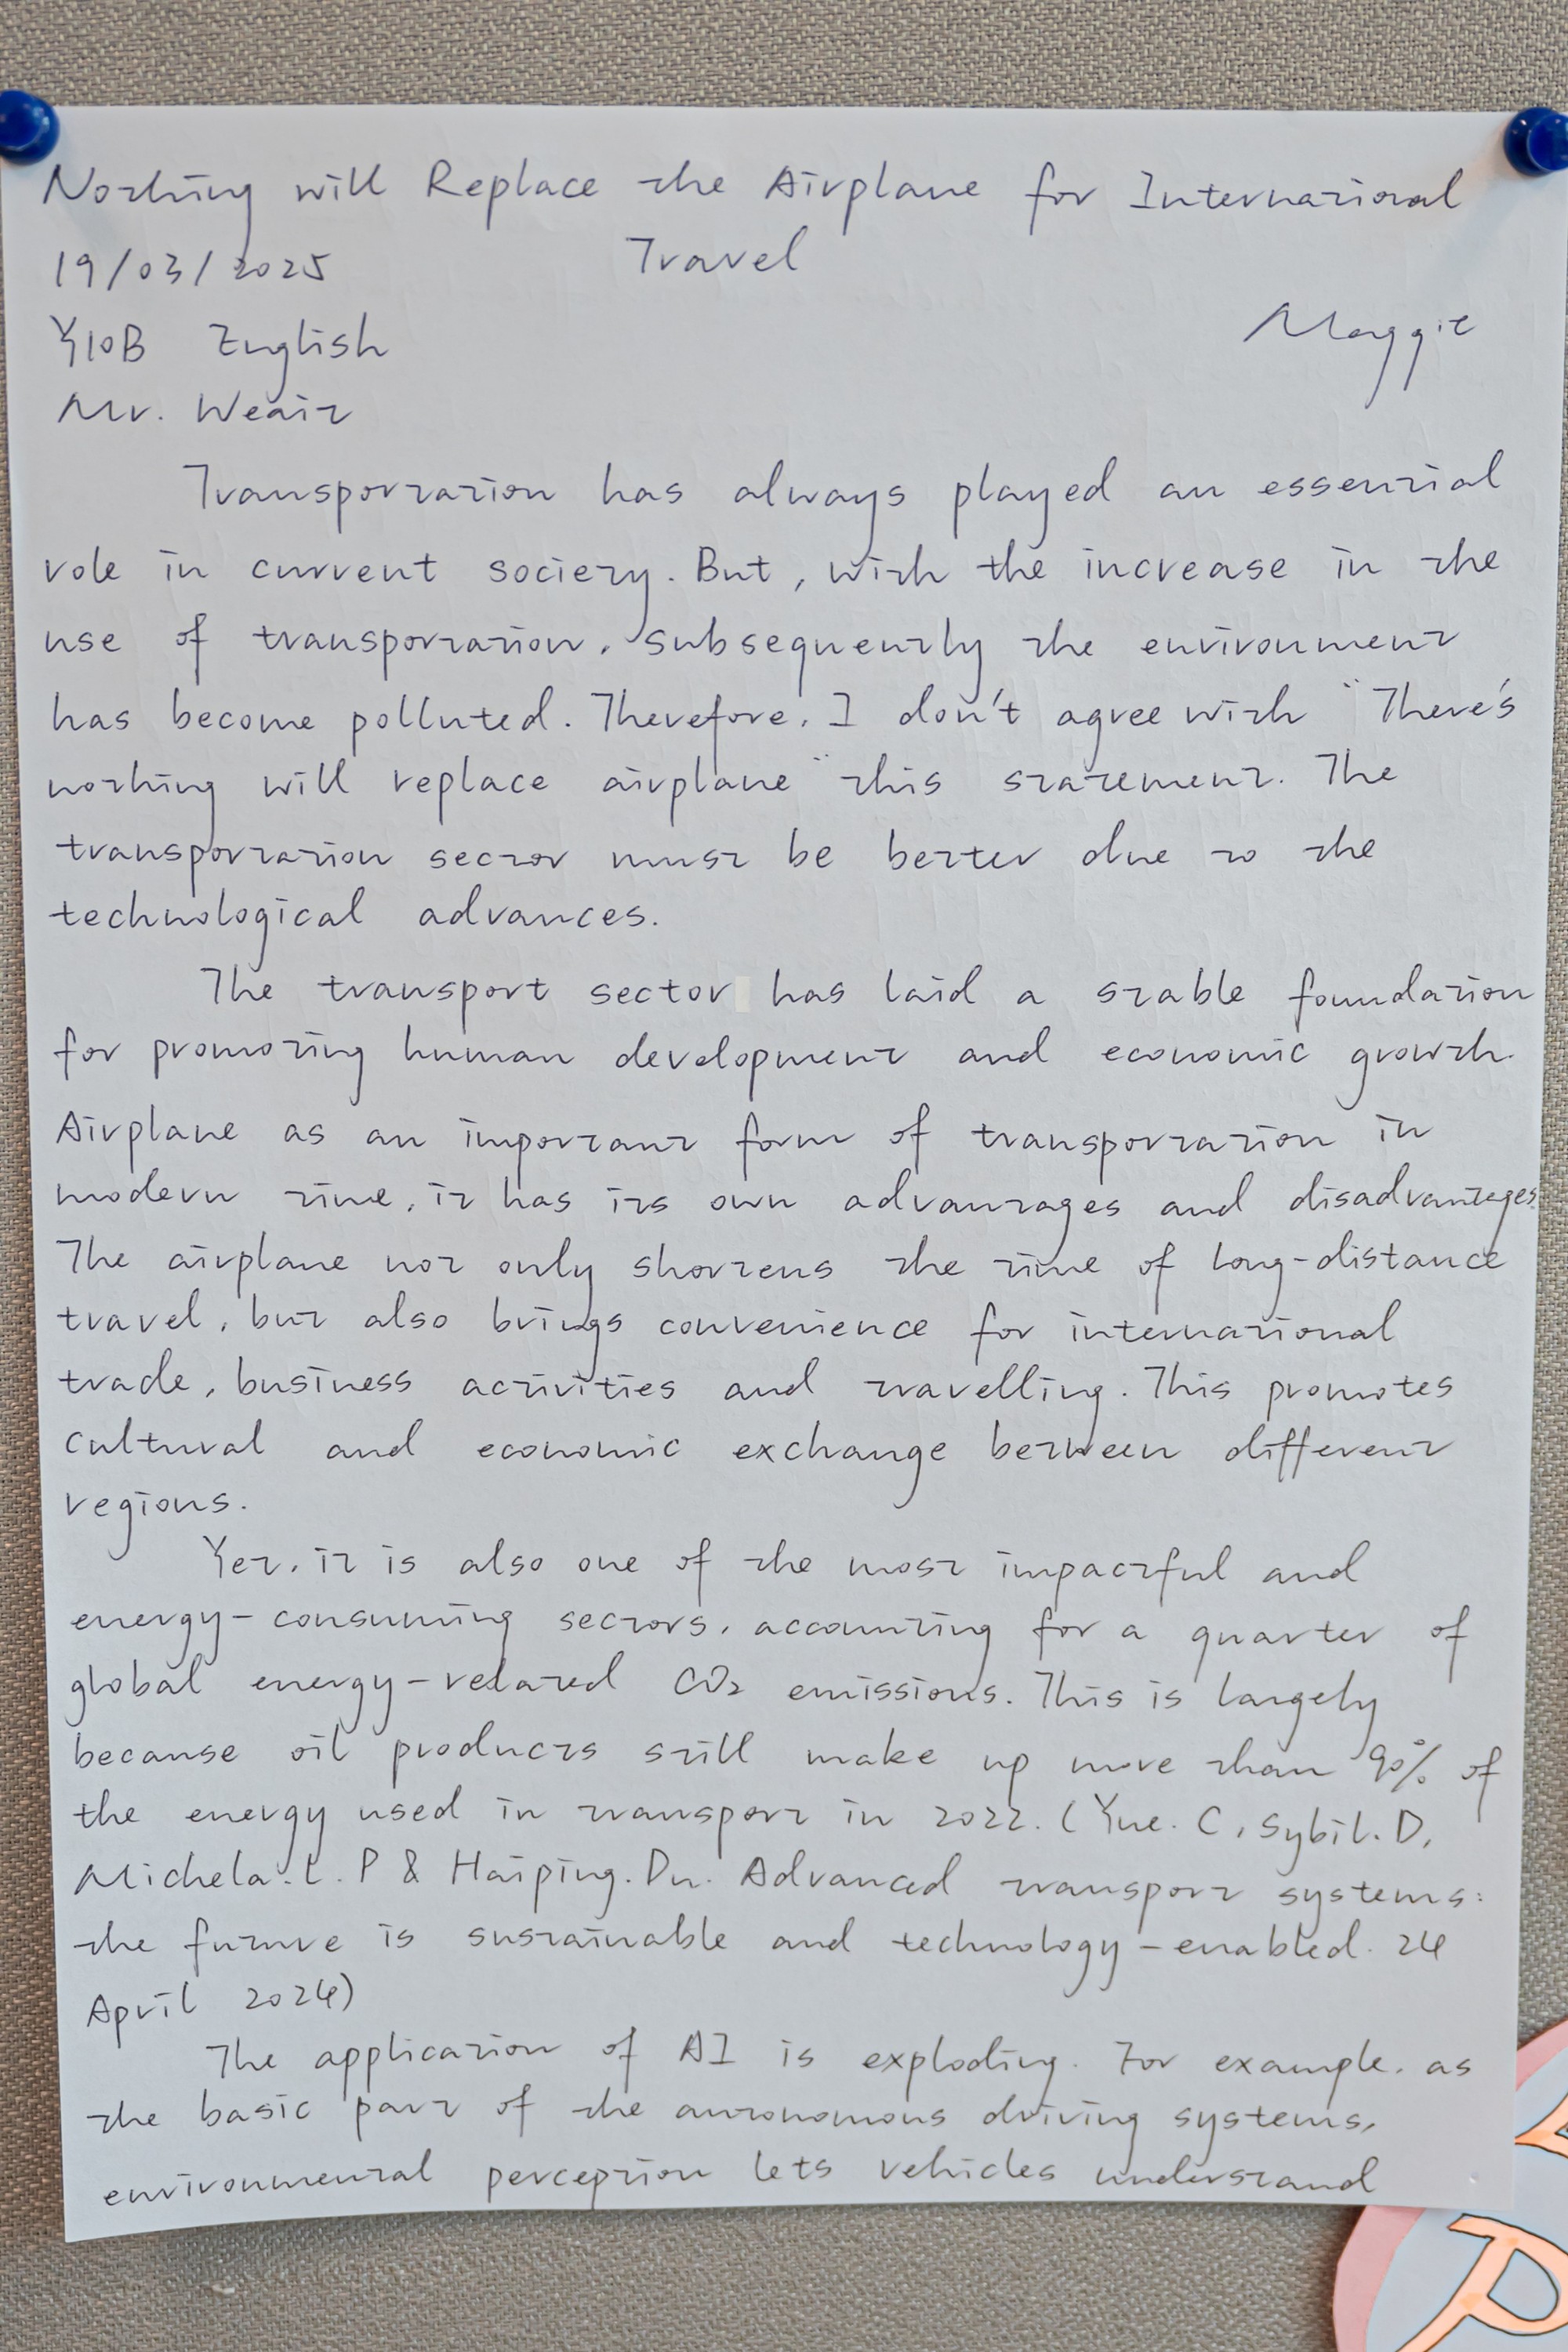 Nothing will Replace the Airplane for International
Travel
19/03/2025
Maggie
Y10B English
Mr. Weair
Transportation has always played an essential
role in current society. But, with the increase in the
use of transportation, subsequently the environment
has become polluted. Therefore, I don't agree with "There's
nothing will replace airplane" this statement. The
transportation sector must be better due to the
technological advances.
The transport sector has laid a stable foundation
for promoting human development and economic growth.
Airplane as an important form of transportation in
modern time, it has its own advantages and disadvantages.
The airplane not only shortens the time of long-distance
travel, but also brings convenience for international
trade, business activities and travelling. This promotes
cultural and economic exchange between different
regions.
Yet, it is also one of the most impactful and
energy-consuming sectors, accounting for a quarter of
global energy-related CO₂ emissions. This is largely
because oil products still make up more than 90% of
the energy used in transport in 2022. (Yue. C, Sybil. D,
Michela. L. P & Haiping. Du. Advanced transport systems:
the future is sustainable and technology-enabled. 24
April 2024)
The application of AI is exploding. For example, as
the basic part of the autonomous driving systems,
environmental perception lets vehicles understand
P